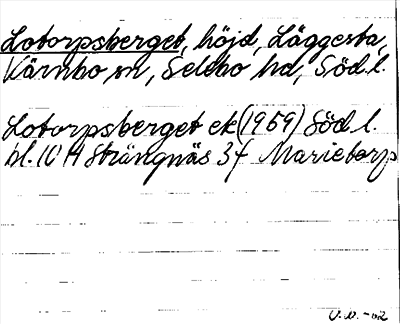 Lotorpsberget, höjd, Läggesta,
Kärnbo sn, Selebo hd, Söd.l.
Lotorpsberget ek (1959) Söd l.
bl. 10 H Strängnäs 3f Marietorp